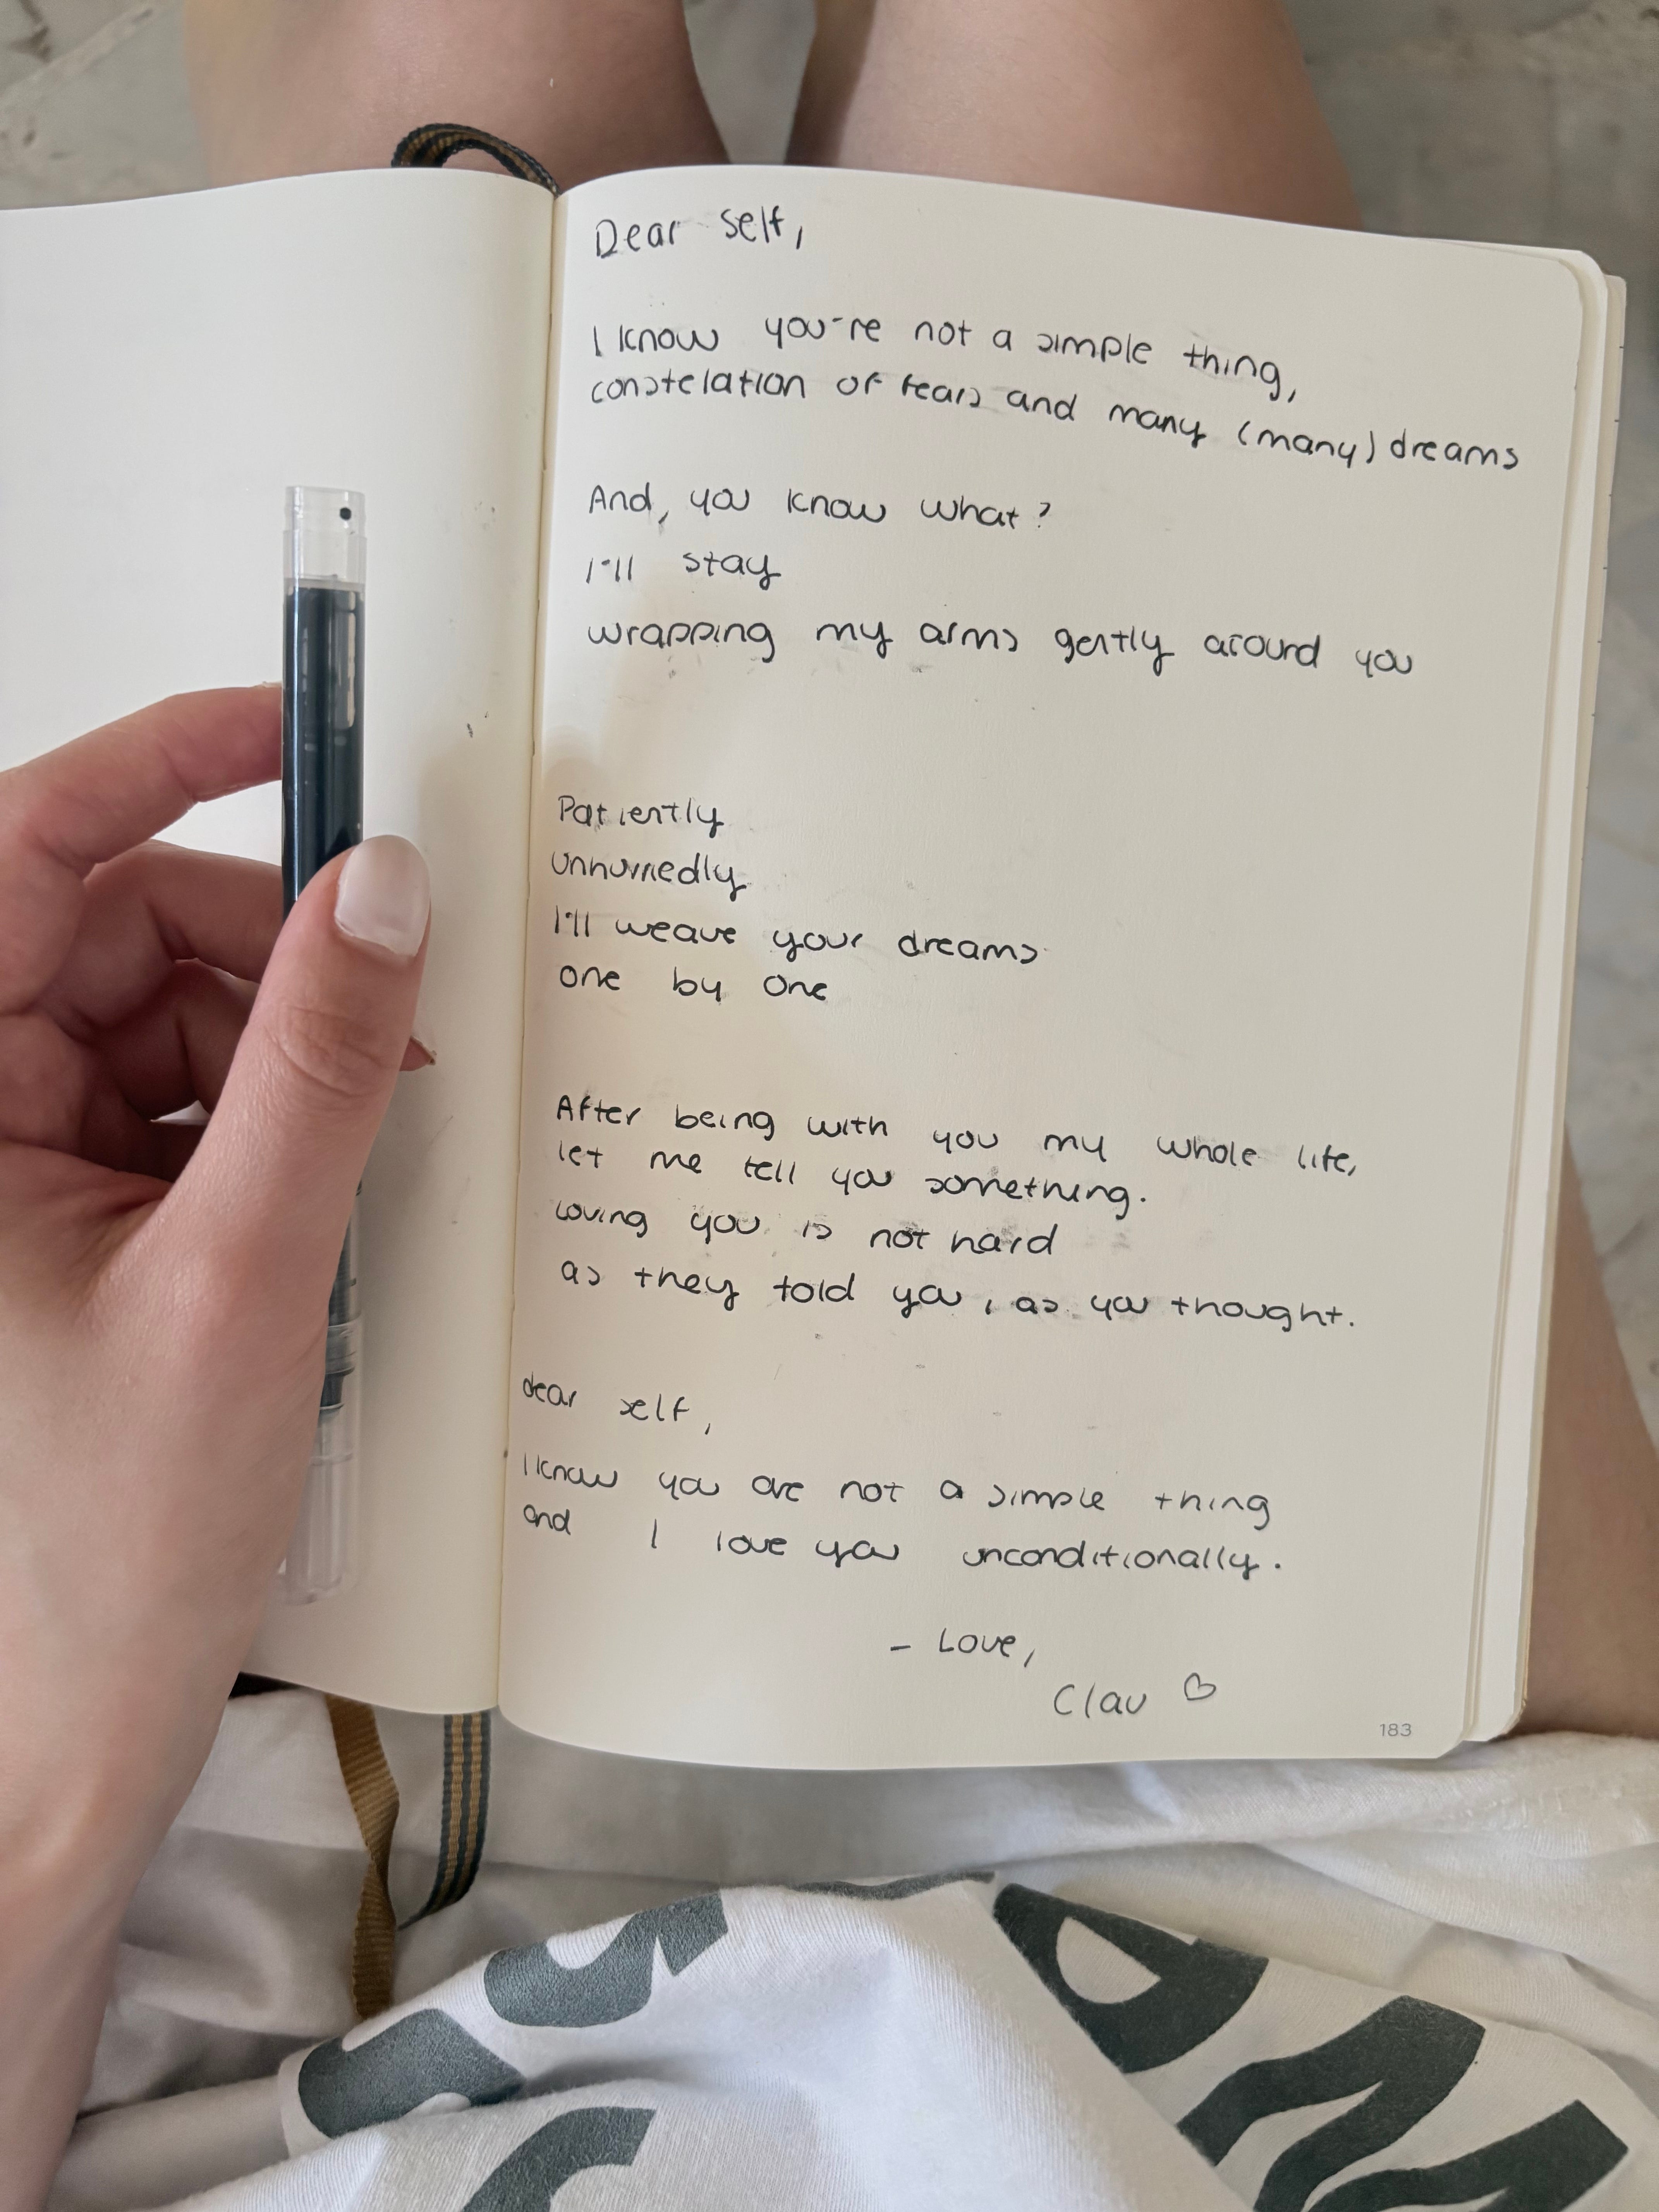 Dear self,
I know you're not a simple thing,
constelation of fears and many (many) dreams
And, you know what?
I'll stay
wrapping my arms gently around you
Patiently
Unhurriedly
I'll weave your dreams
one by one
After being with you my whole life,
let me tell you something.
Loving you is not hard
as they told you, as you thought.
dear self,
I know you are not a simple thing
and I love you unconditionally.
- Love,
Clau ♡
183